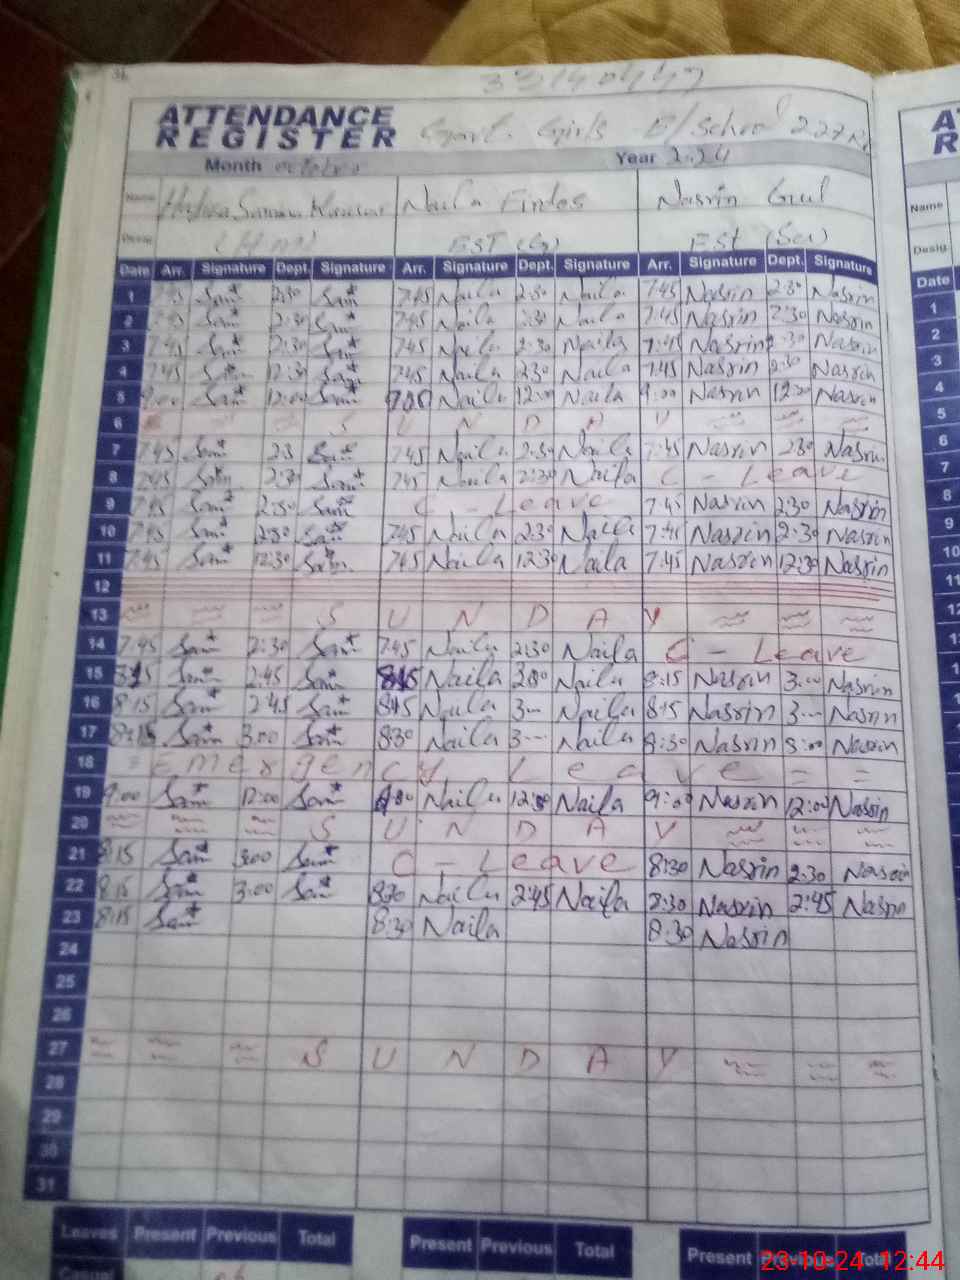 33140447
ATTENDANCE
REGISTER Govt. Girls E/School 227 R
Month october Year 2024
Name Naila Firdos Nasrin Gul
EST (Sci)
Date Arr. Signature Dept. Signature Arr. Signature Dept. Signature Arr. Signature Dept. Signature
1 7:45 2:30 7:45 Naila 2:30 Naila 7:45 Nasrin 2:30 Nasrin
2 7:45 2:30 7:45 Naila 2:30 Naila 7:45 Nasrin 2:30 Nasrin
3 7:45 2:30 7:45 Naila 2:30 Naila 7:45 Nasrin 2:30 Nasrin
4 7:45 12:30 7:45 Naila 2:30 Naila 7:45 Nasrin 2:30 Nasrin
5 9:00 12:00 9:00 Naila 12:00 Naila 9:00 Nasrin 12:00 Nasrin
6 S U N D A Y
7 7:45 2:3 7:45 Naila 2:30 Naila 7:45 Nasrin 2:30 Nasrin
8 7:45 2:30 7:45 Naila 2:30 Naila C - Leave
9 7:45 2:30 C - Leave 7:45 Nasrin 2:30 Nasrin
10 7:45 2:30 7:45 Naila 2:30 Naila 7:45 Nasrin 2:30 Nasrin
11 7:45 12:30 7:45 Naila 12:30 Naila 7:45 Nasrin 12:30 Nasrin
12
13 S U N D A Y
14 7:45 2:30 7:45 Naila 2:30 Naila C - Leave
15 8:15 2:45 8:15 Naila 3:00 Naila 8:15 Nasrin 3:00 Nasrin
16 8:15 2:45 8:15 Naila 3-- Naila 8:15 Nasrin 3--- Nasrin
17 3:00 8:30 Naila 3-- Naila 8:30 Nasrin 3:00 Nasrin
18 = Emergency Leave = =
19 9:00 12:00 9:00 Naila 12:00 Naila 9:00 Nasrin 12:00 Nasrin
20 S U N D A Y
21 8:15 3:00 C - Leave 8:30 Nasrin 2:30 Nasrin
22 8:15 3:00 8:30 Naila 2:45 Naila 8:30 Nasrin 2:45 Nasrin
23 8:15 8:30 Naila 8:30 Nasrin
24
25
26
27 S U N D A Y
28
29
30
31
Leaves Present Previous Total Present Previous Total Present Previous Total
Casual
23-10-24 12:44
A
R
Name
Desig.
Date
1
2
3
4
5
6
7
8
9
10
11
12